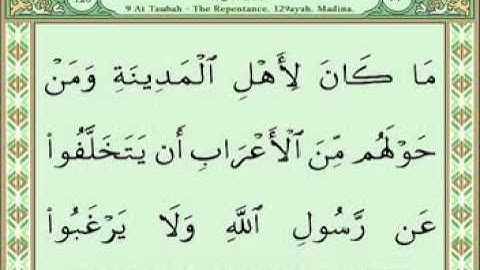 9 At Taubah - The Repentance. 129ayah. Madina.
مَا كَانَ لِأَهْلِ ٱلْمَدِينَةِ وَمَنْ
حَوْلَهُم مِّنَ ٱلْأَعْرَابِ أَن يَتَخَلَّفُوا۟
عَن رَّسُولِ ٱللَّهِ وَلَا يَرْغَبُوا۟